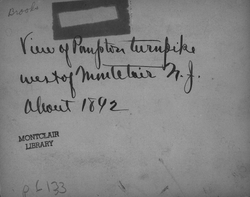 Brooks
View of Pompton turnpike
west of Montclair N.J.
About 1892
MONTCLAIR
LIBRARY
p L 133